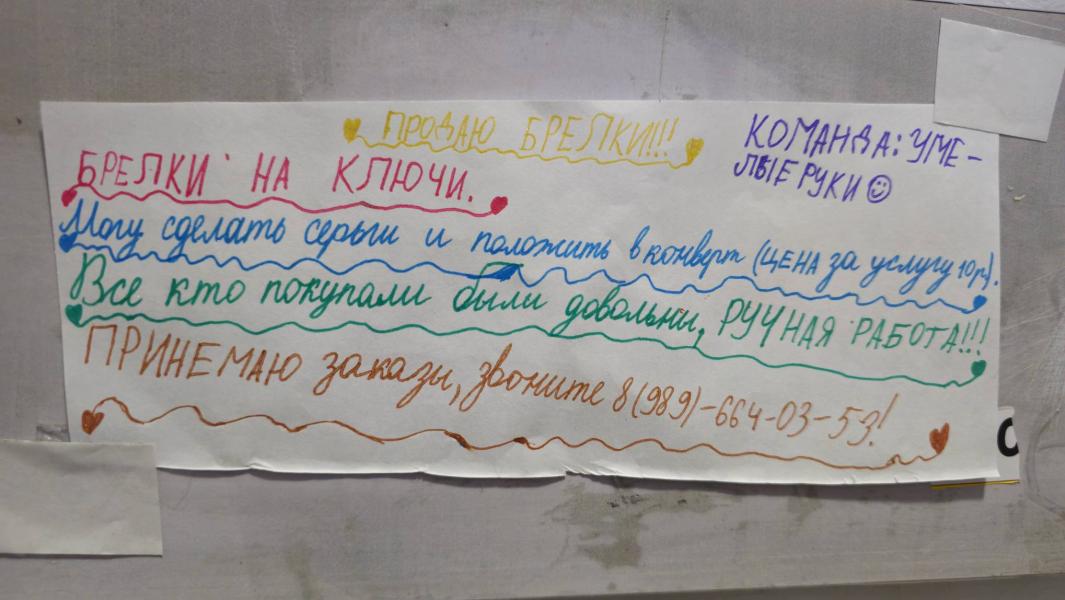 ПРОДАЮ БРЕЛКИ!!!
КОМАНДА: УМЕ-
ЛЫЕ РУКИ☺
БРЕЛКИ НА КЛЮЧИ.
Могу сделать серьги и положить в конверт (ЦЕНА за услугу 10р).
Все кто покупали были довольны, РУЧНАЯ РАБОТА!!!
ПРИНЕМАЮ заказы, звоните 8(989)-664-03-53!